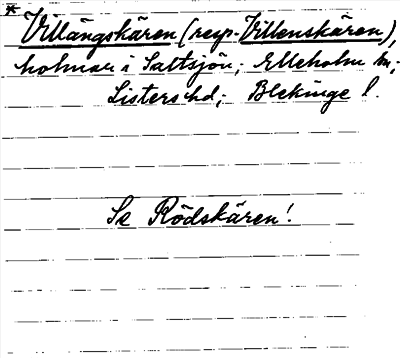 * Villängskären (resp. Villenskären),
holmar i Saltsjön; Elleholm sn;
Listers hd; Blekinge l.
Se Rödskären!